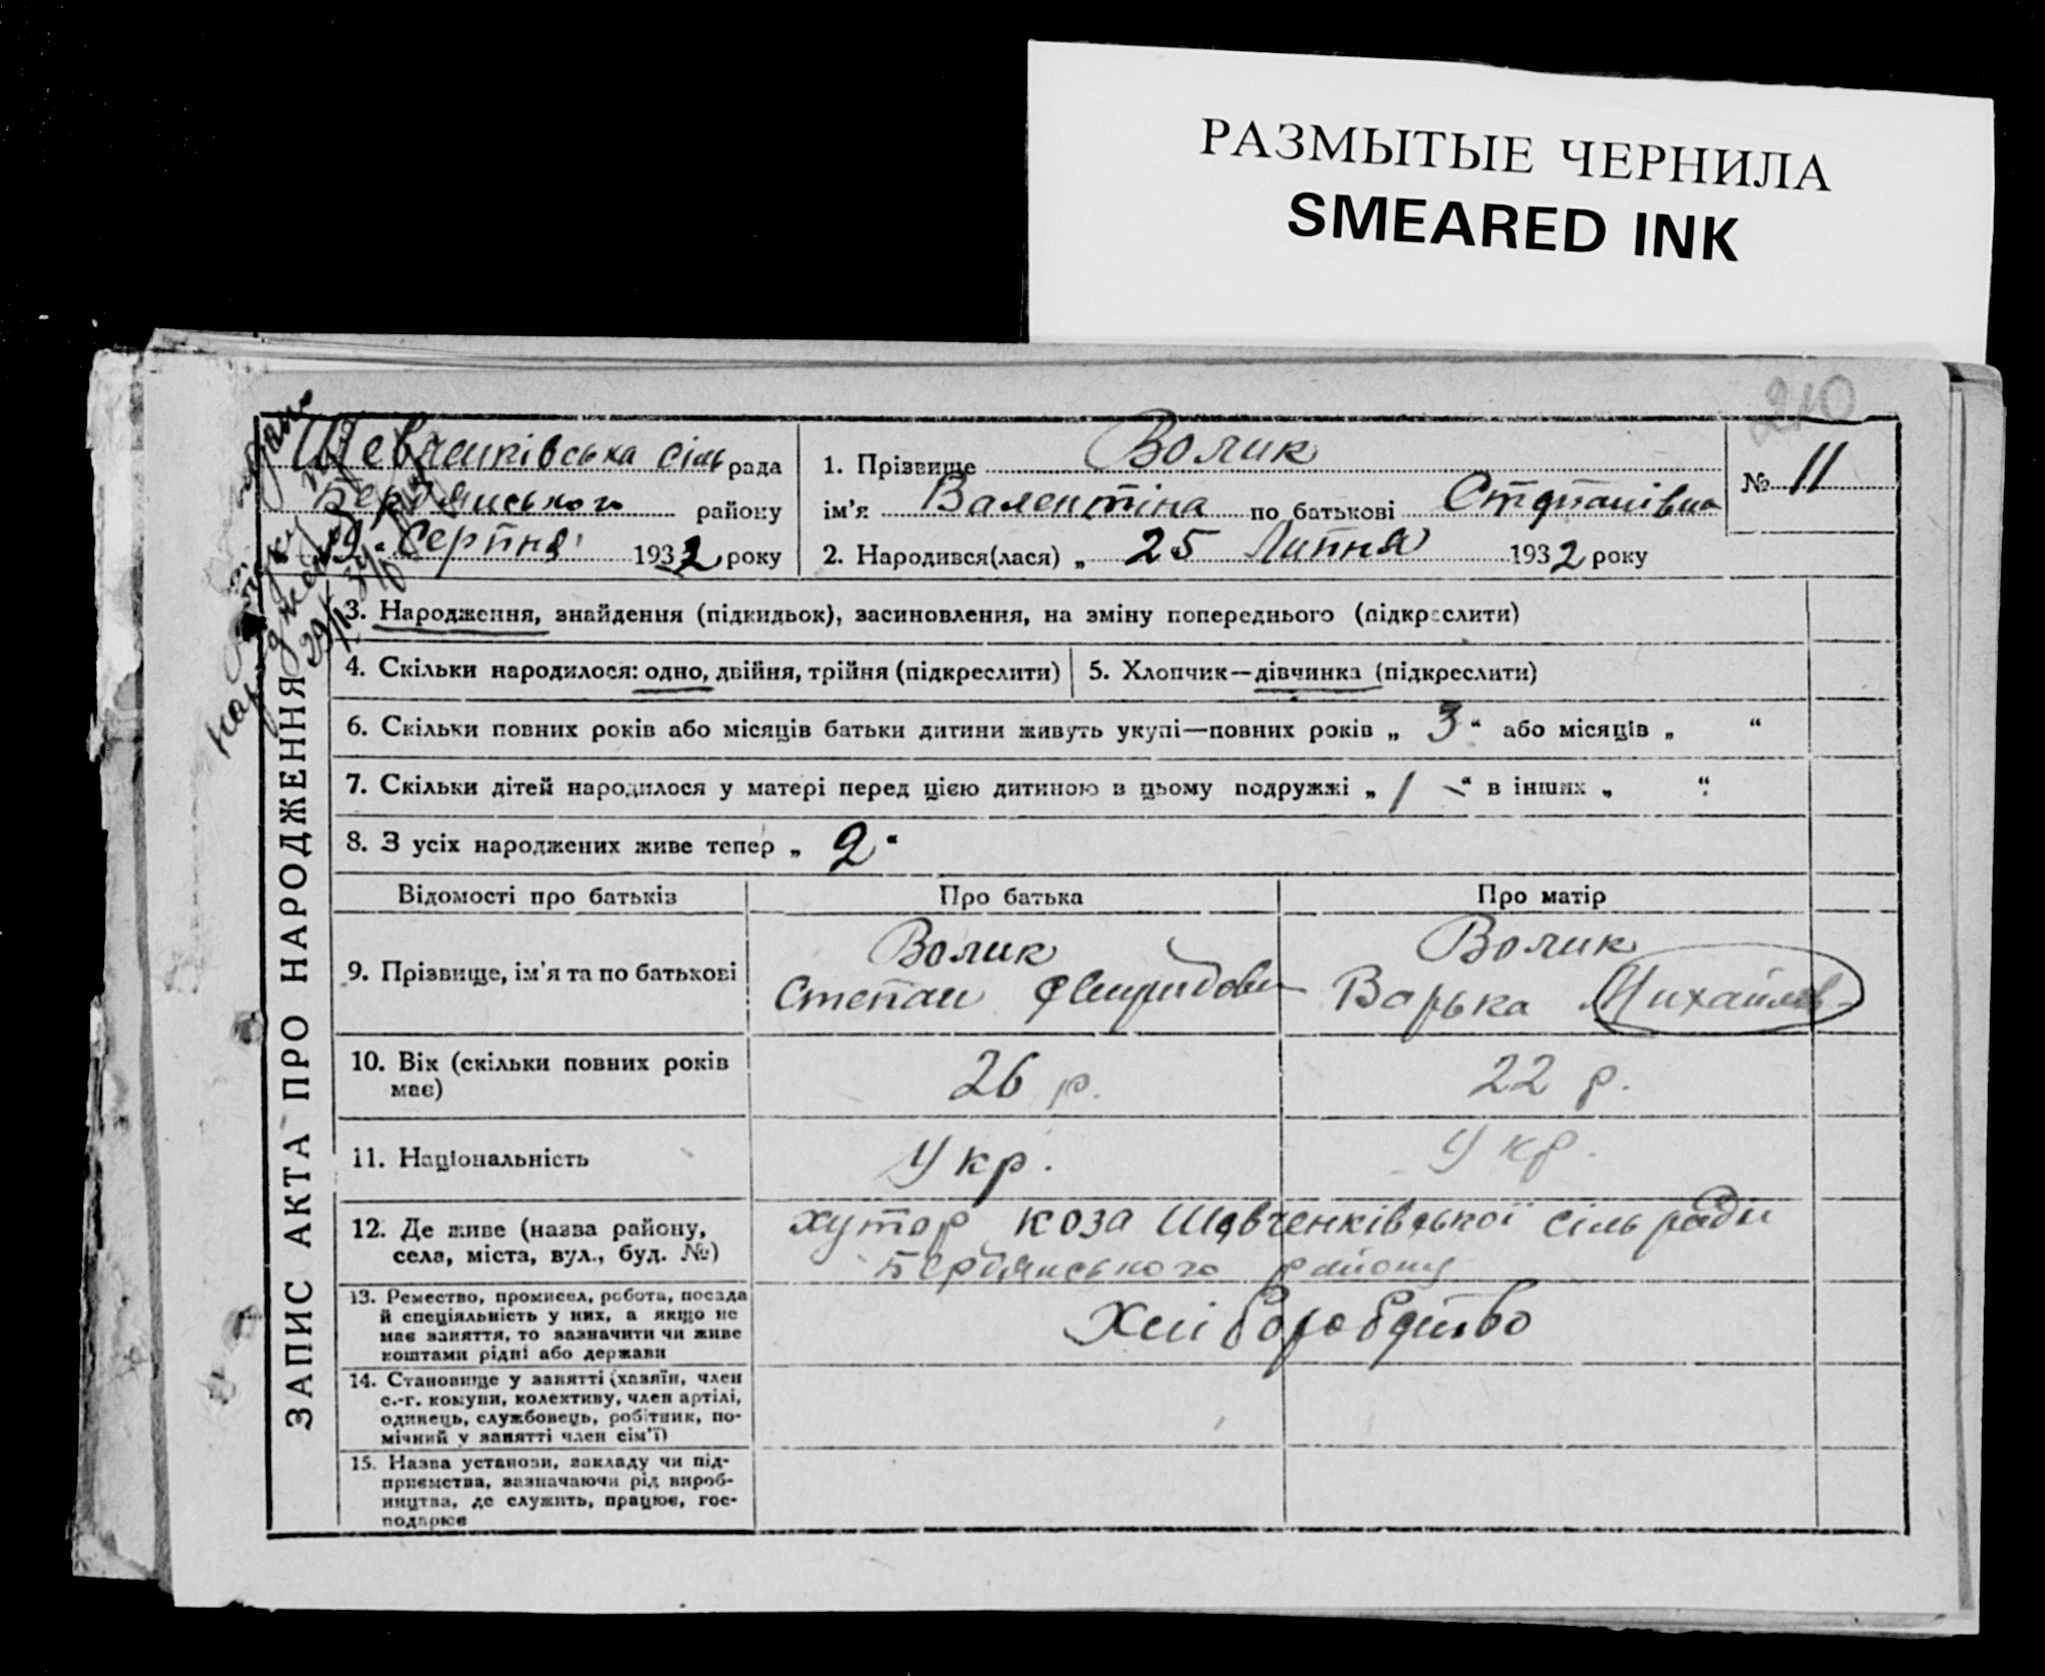 РАЗМЫТЫЕ ЧЕРНИЛА
SMEARED INK
210
Шевченківська сіль рада
Бердянського району
9 „ Серпня 1932 року
1. Прізвище Волик
ім’я Валентіна по батькові Степанівна
2. Народився(лася) „ 25 Липня 1932 року
№ 11
3. Народження, знайдення (підкидьок), засиновлення, на зміну попереднього (підкреслити)
4. Скільки народилося: одно, двійня, трійня (підкреслити)
5. Хлопчик—дівчинка (підкреслити)
6. Скільки повних років або місяців батьки дитини живуть укупі—повних років „ 3 “ або місяців „ “
7. Скільки дітей народилося у матері перед цією дитиною в цьому подружжі „ 1 — “ в інших „ “
8. З усіх народжених живе тепер „ 2 “
Відомості про батьків
Про батька
Про матір
9. Прізвище, ім’я та по батькові
Волик
Степан
Волик
Варька Михайлов
10. Вік (скільки повних років
має)
26 р.
22 р.
11. Національність
Укр.
Укр.
12. Де живе (назва району,
села, міста, вул., буд. №)
хутор коза Шевченківської сіль ради
Бердянського району
13. Ремество, промисел, робота, посада
й спеціяльність у них, а якщо не
має заняття, то зазначити чи живе
коштами рідні або держави
Хліборобство
14. Становище у занятті (хазяїн, член
с.-г. комуни, колективу, член артілі,
одинець, службовець, робітник, по-
мічний у занятті член сім’ї)
15. Назва установи, закладу чи під-
приємства, зазначаючи рід вироб-
ництва, де служить, працює, гос-
подарює
ЗАПИС АКТА ПРО НАРОДЖЕННЯ